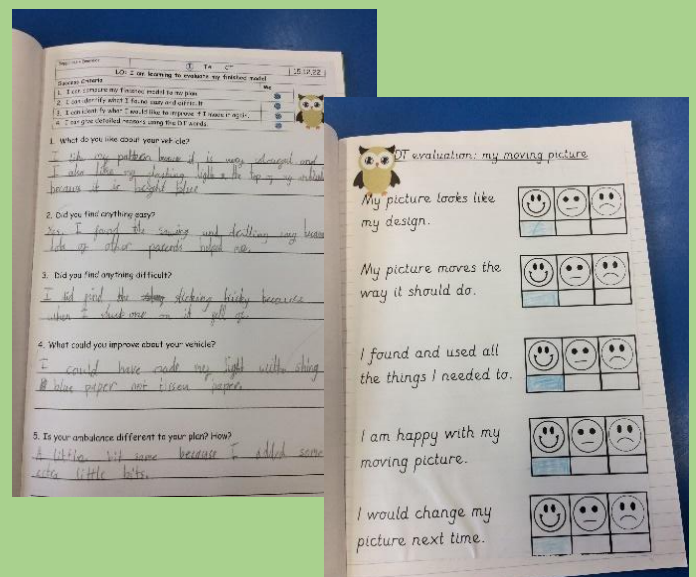 I TA CT
LO: I am learning to evaluate my finished model
15.12.22
Success Criteria
Me
1. I can compare my finished model to my plan.
2. I can identify what I found easy and difficult
3. I can identify what I would like to improve if I made it again.
4. I can give detailed reasons using the DT words.
1. What do you like about your vehicle?
I like my pattern because it is very colourful and
I also like my flashing light on the top of my
because it is bright blue
2. Did you find anything easy?
Yes I found the sawing and drilling easy because
lots of other parents helped me.
3. Did you find anything difficult?
I did find the sticking tricky because
when I stuck one on it fell of.
4. What could you improve about your vehicle?
I could have made my light with shing
blue paper not tissen paper.
5. Is your ambulance different to your plan? How?
A little bit same because I added some
little bits.
DT evaluation: my moving picture
My picture looks like
my design.
My picture moves the
way it should do.
I found and used all
the things I needed to.
I am happy with my
moving picture.
I would change my
picture next time.